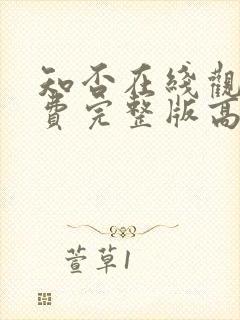 知否在线觀
費完整版高
萱草1